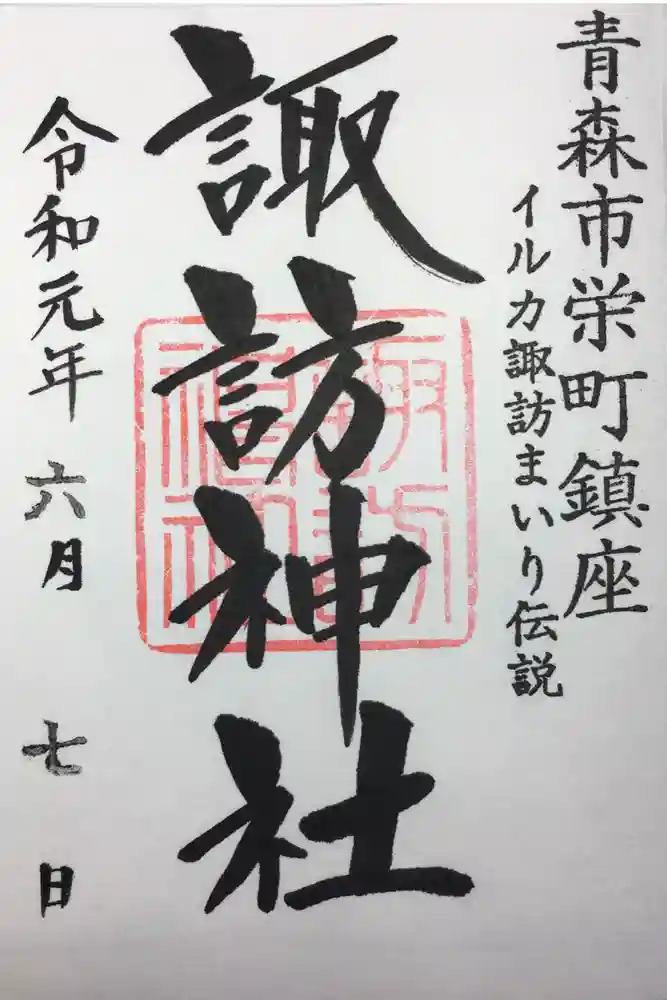 青森市栄町鎮座
イルカ諏訪まいり伝説
諏訪神社
令和元年六月七日